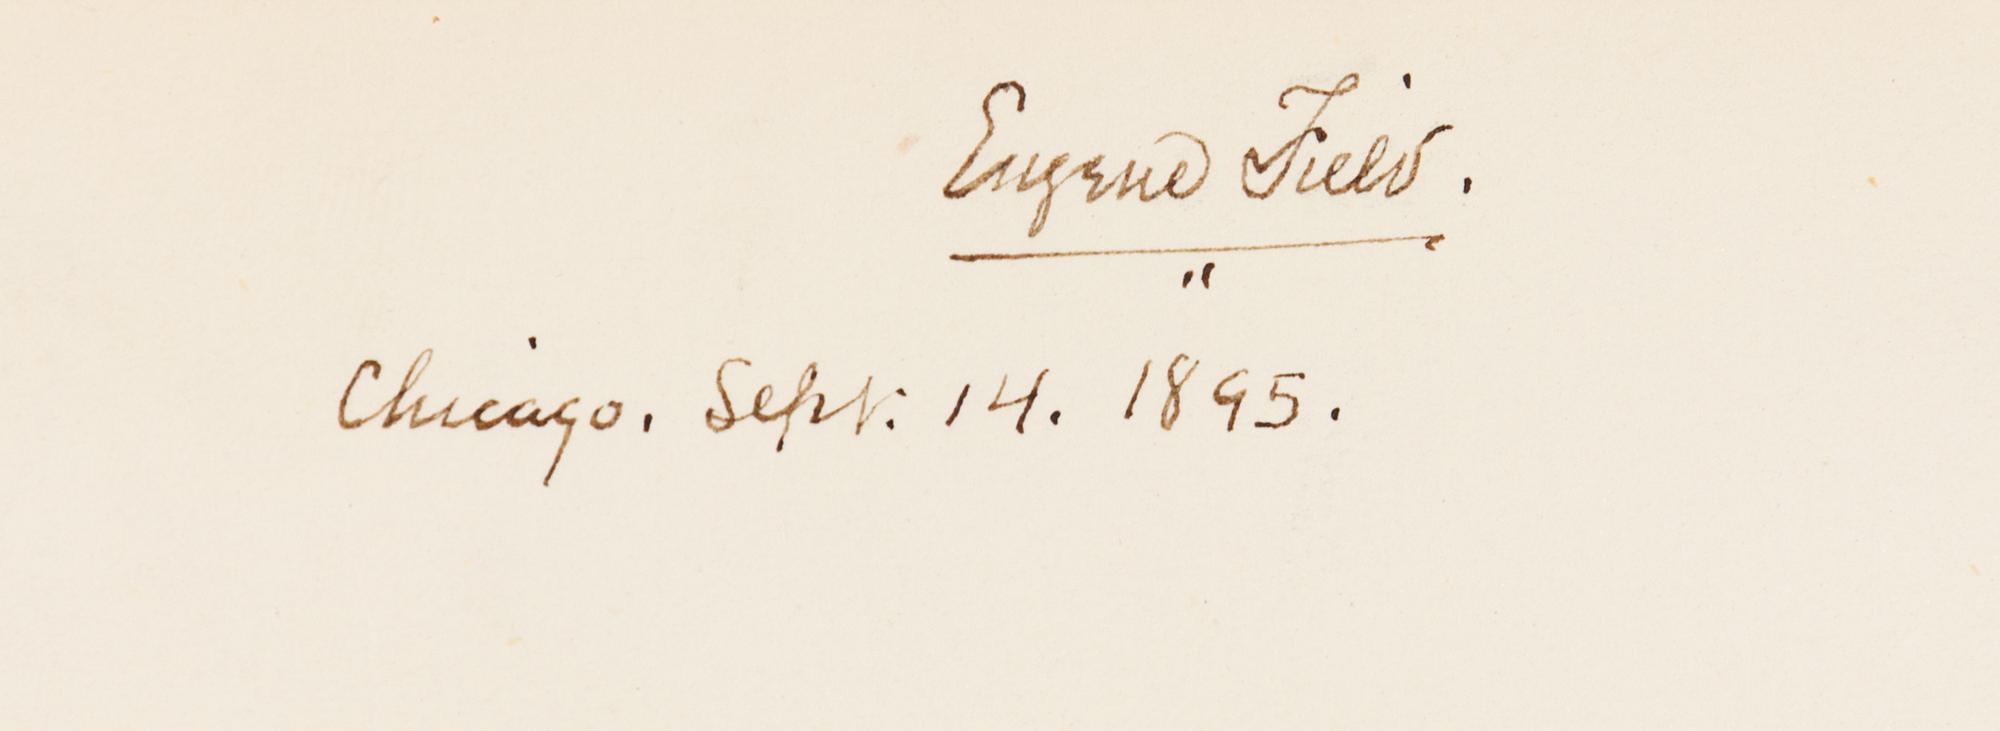 Eugene Field.
"
Chicago. Sept. 14. 1895.